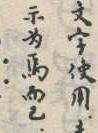 文字使用
示为馬而已